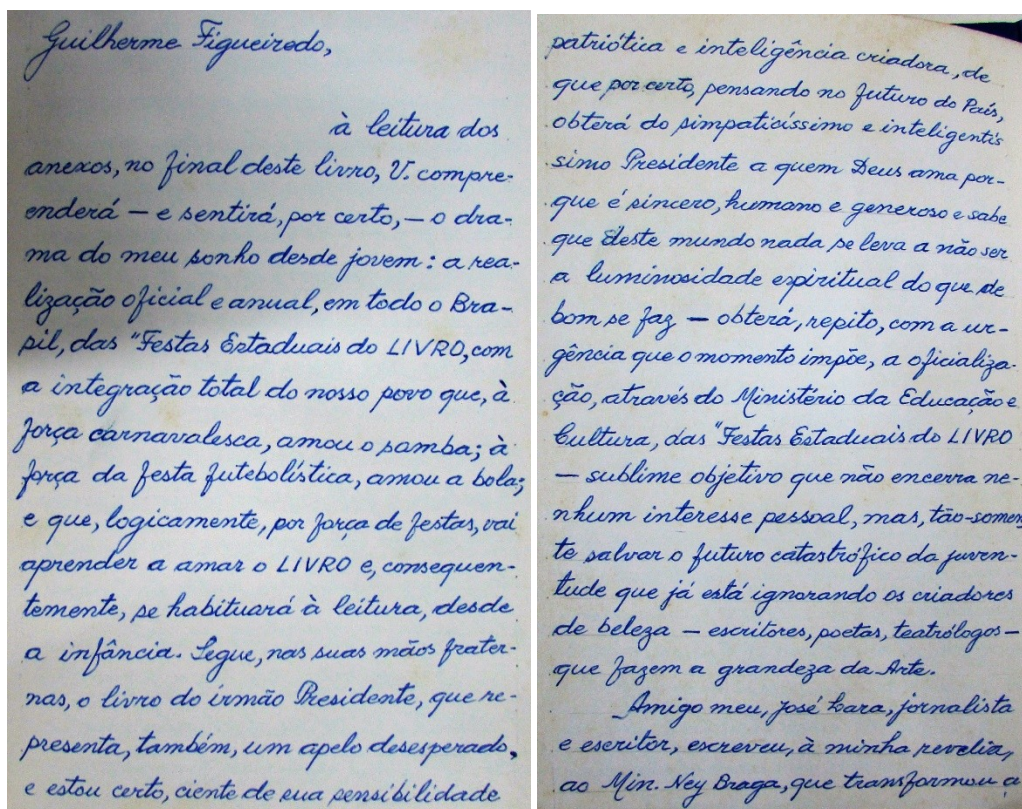 Guilherme Figueiredo,
à leitura dos
anexos, no final deste livro, V. compre-
enderá — e sentirá, por certo, — o dra-
ma do meu sonho desde jovem: a rea-
lização oficial e anual, em todo o Bra-
sil, das "Festas Estaduais do LIVRO, com
a integração total do nosso povo que, à
força carnavalesca, amou o samba; à
força da festa futebolística, amou a bola;
e que, logicamente, por força de festas, vai
aprender a amar o LIVRO e, consequen-
temente, se habituará à leitura, desde
a infância. Segue, nas suas mãos frater-
nas, o livro do irmão Presidente, que re-
presenta, também, um apelo desesperado,
e estou certo, ciente de sua sensibilidade
patriótica e inteligência criadora, de
que por certo, pensando no futuro do País,
obterá do simpaticíssimo e inteligentís
simo Presidente a quem Deus ama por-
que é sincero, humano e generoso e sabe
que deste mundo nada se leva a não ser
a luminosidade espiritual do que de
bom se faz — obterá, repito, com a ur-
gência que o momento impõe, a oficializa-
ção, através do Ministério da Educação e
Cultura, das "Festas Estaduais do LIVRO
— sublime objetivo que não encerra ne-
nhum interesse pessoal, mas, tão-somen
te salvar o futuro catastrófico da juven-
tude que já está ignorando os criadores
de beleza — escritores, poetas, teatrólogos —
que fazem a grandeza da Arte.
Amigo meu, José Lara, jornalista
e escritor, escreveu, à minha revelia,
ao Min. Ney Braga, que transformou a